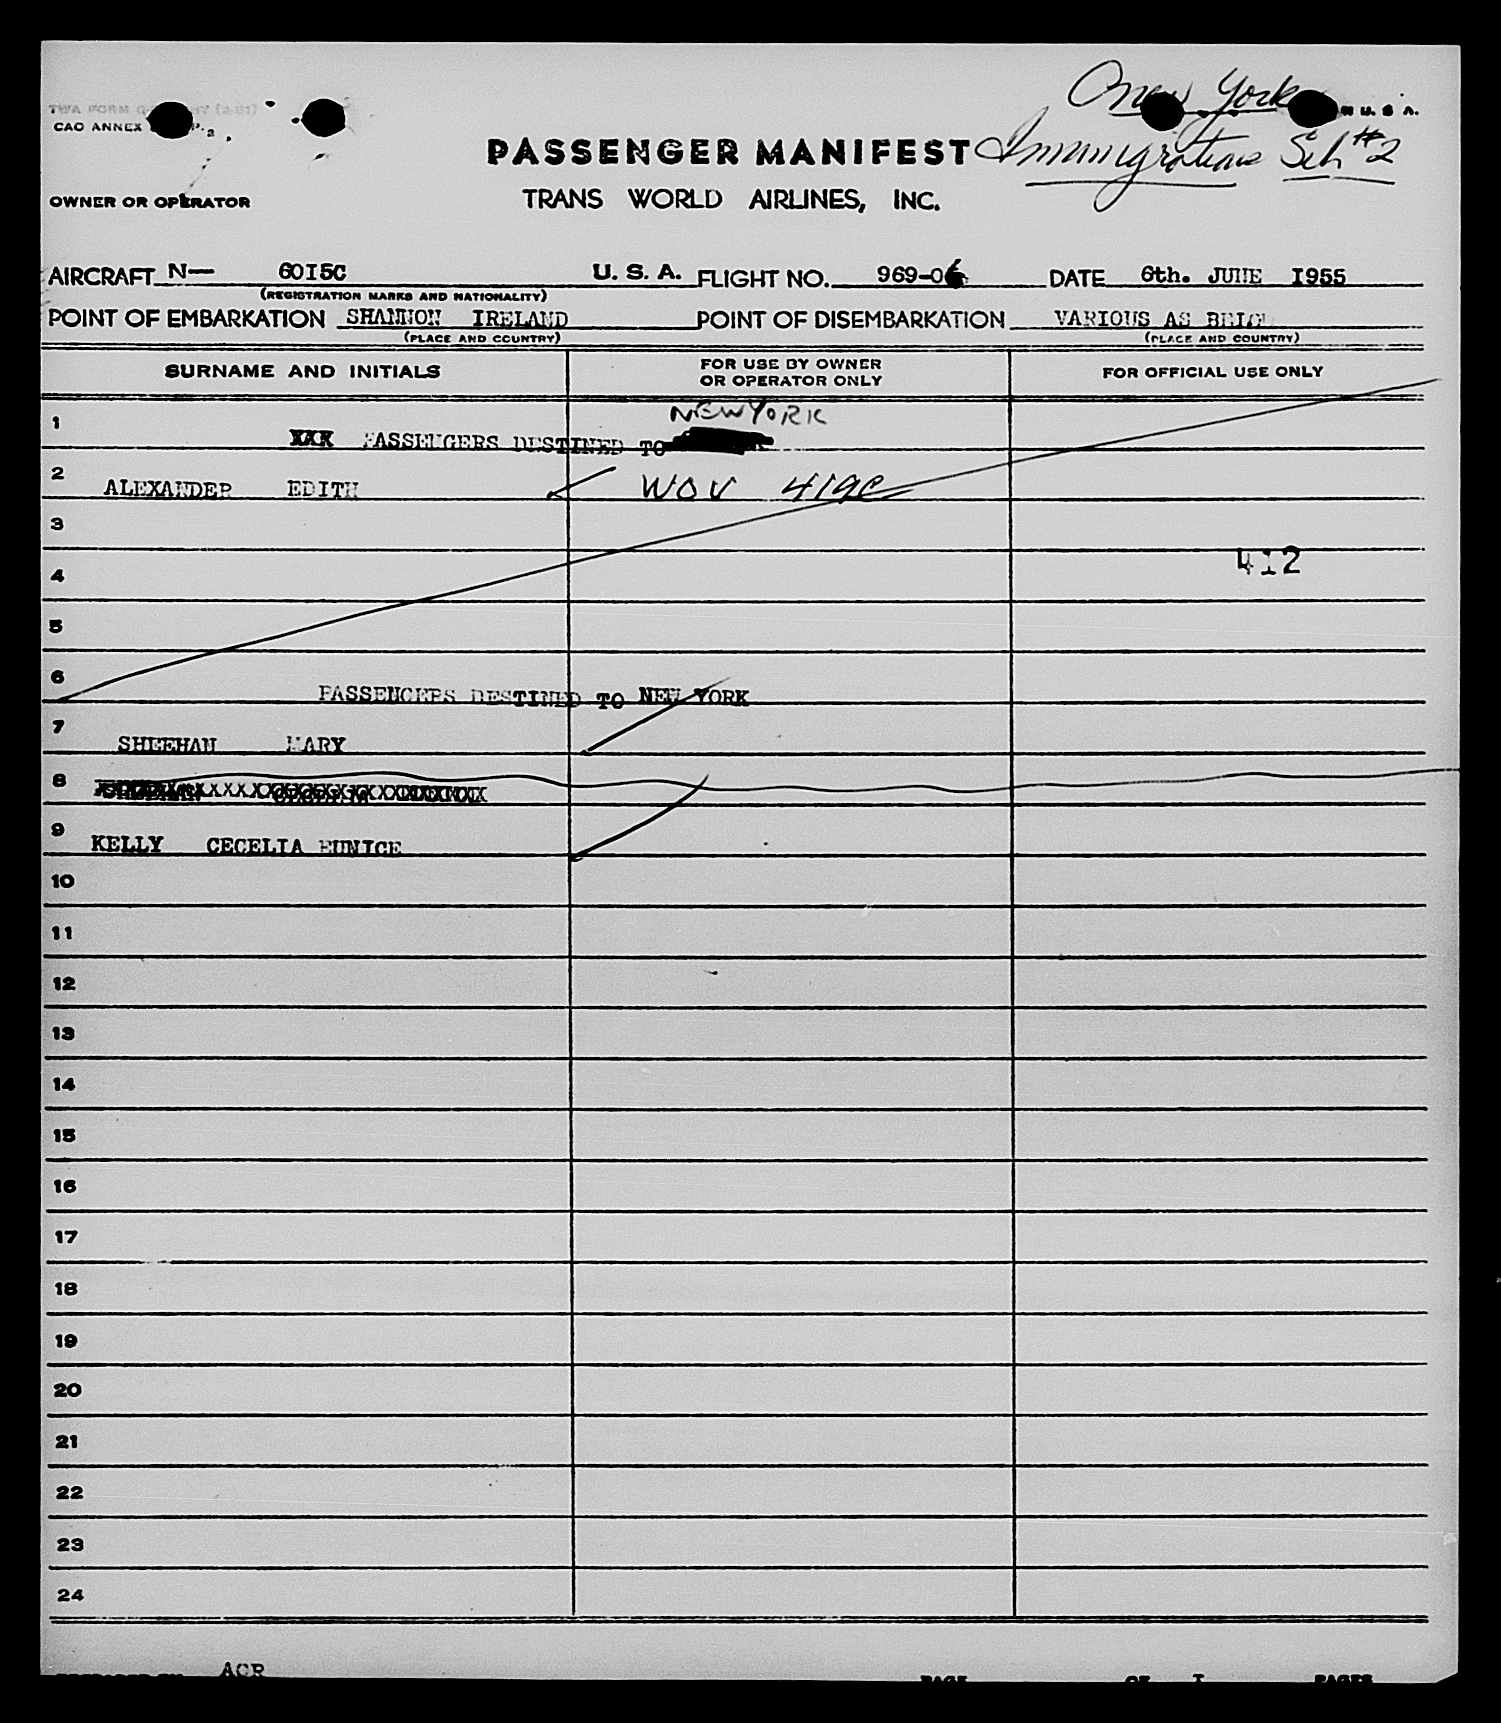 New York
TWA FORM
CAO ANNEX
U. S. A.
PASSENGER MANIFEST
Immigration Sch #2
OWNER OR OPERATOR
TRANS WORLD AIRLINES, INC.
AIRCRAFT N— 6015C U. S. A. FLIGHT NO. 969-06 DATE 6th. JUNE 1955
(REGISTRATION MARKS AND NATIONALITY)
POINT OF EMBARKATION SHANNON IRELAND POINT OF DISEMBARKATION VARIOUS AS
(PLACE AND COUNTRY) (PLACE AND COUNTRY)
SURNAME AND INITIALS FOR USE BY OWNER OR OPERATOR ONLY FOR OFFICIAL USE ONLY
NEW YORK
1 XXX PASSENGERS DESTINED TO
2 ALEXANDER EDITH WOV 419C
3
412
4
5
6 PASSENGERS DESTINED TO NEW YORK
7 SHEEHAN MARY
8
9 KELLY CECELIA EUNICE
10
11
12
13
14
15
16
17
18
19
20
21
22
23
24
ACR
PAGE OF I PAGES